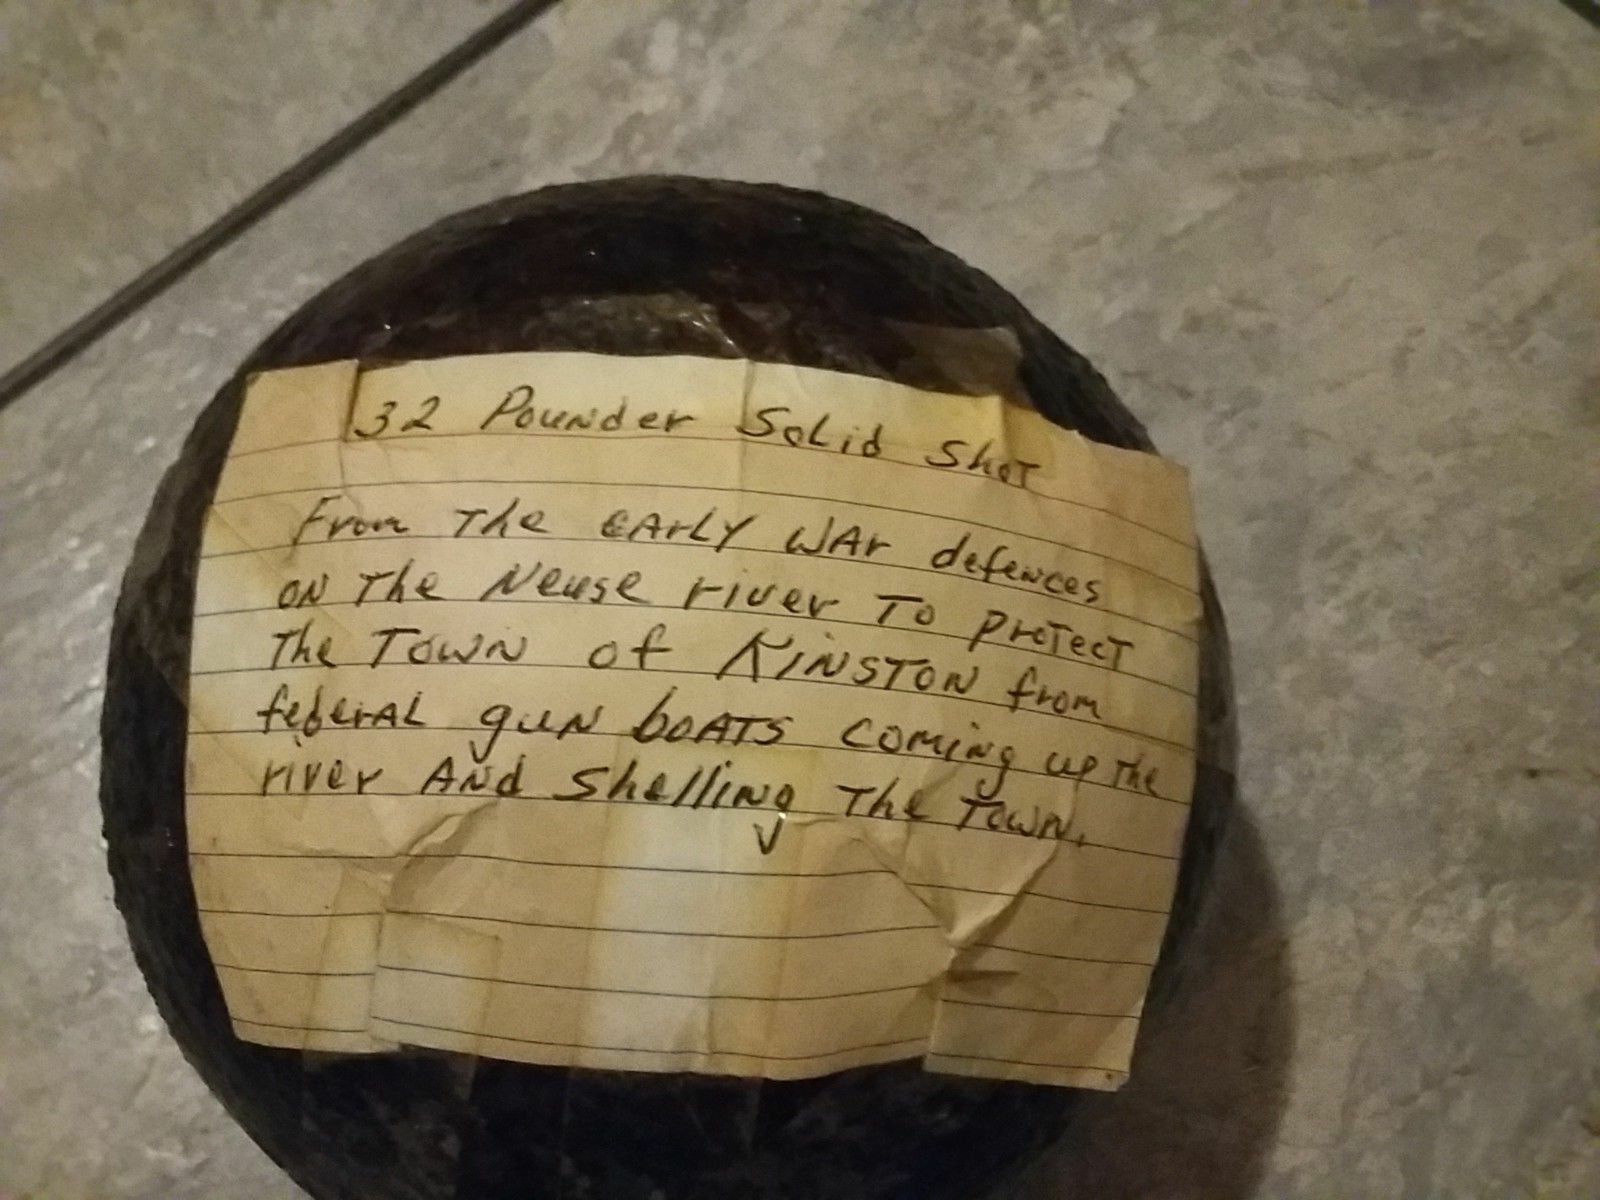 32 Pounder Solid Shot
From The early war defences
on The Neuse river To protect
The Town of Kinston from
federal gun boats coming up the
river And Shelling The Town.